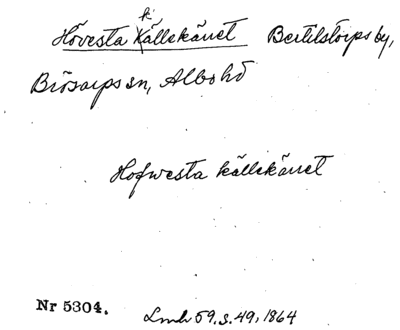 Hövesta källekäret Bertilstorps by,
Brösarps sn, Albo hd
Hofwesta källekäret
Nr 5304.
Lmb 59, s. 49, 1864